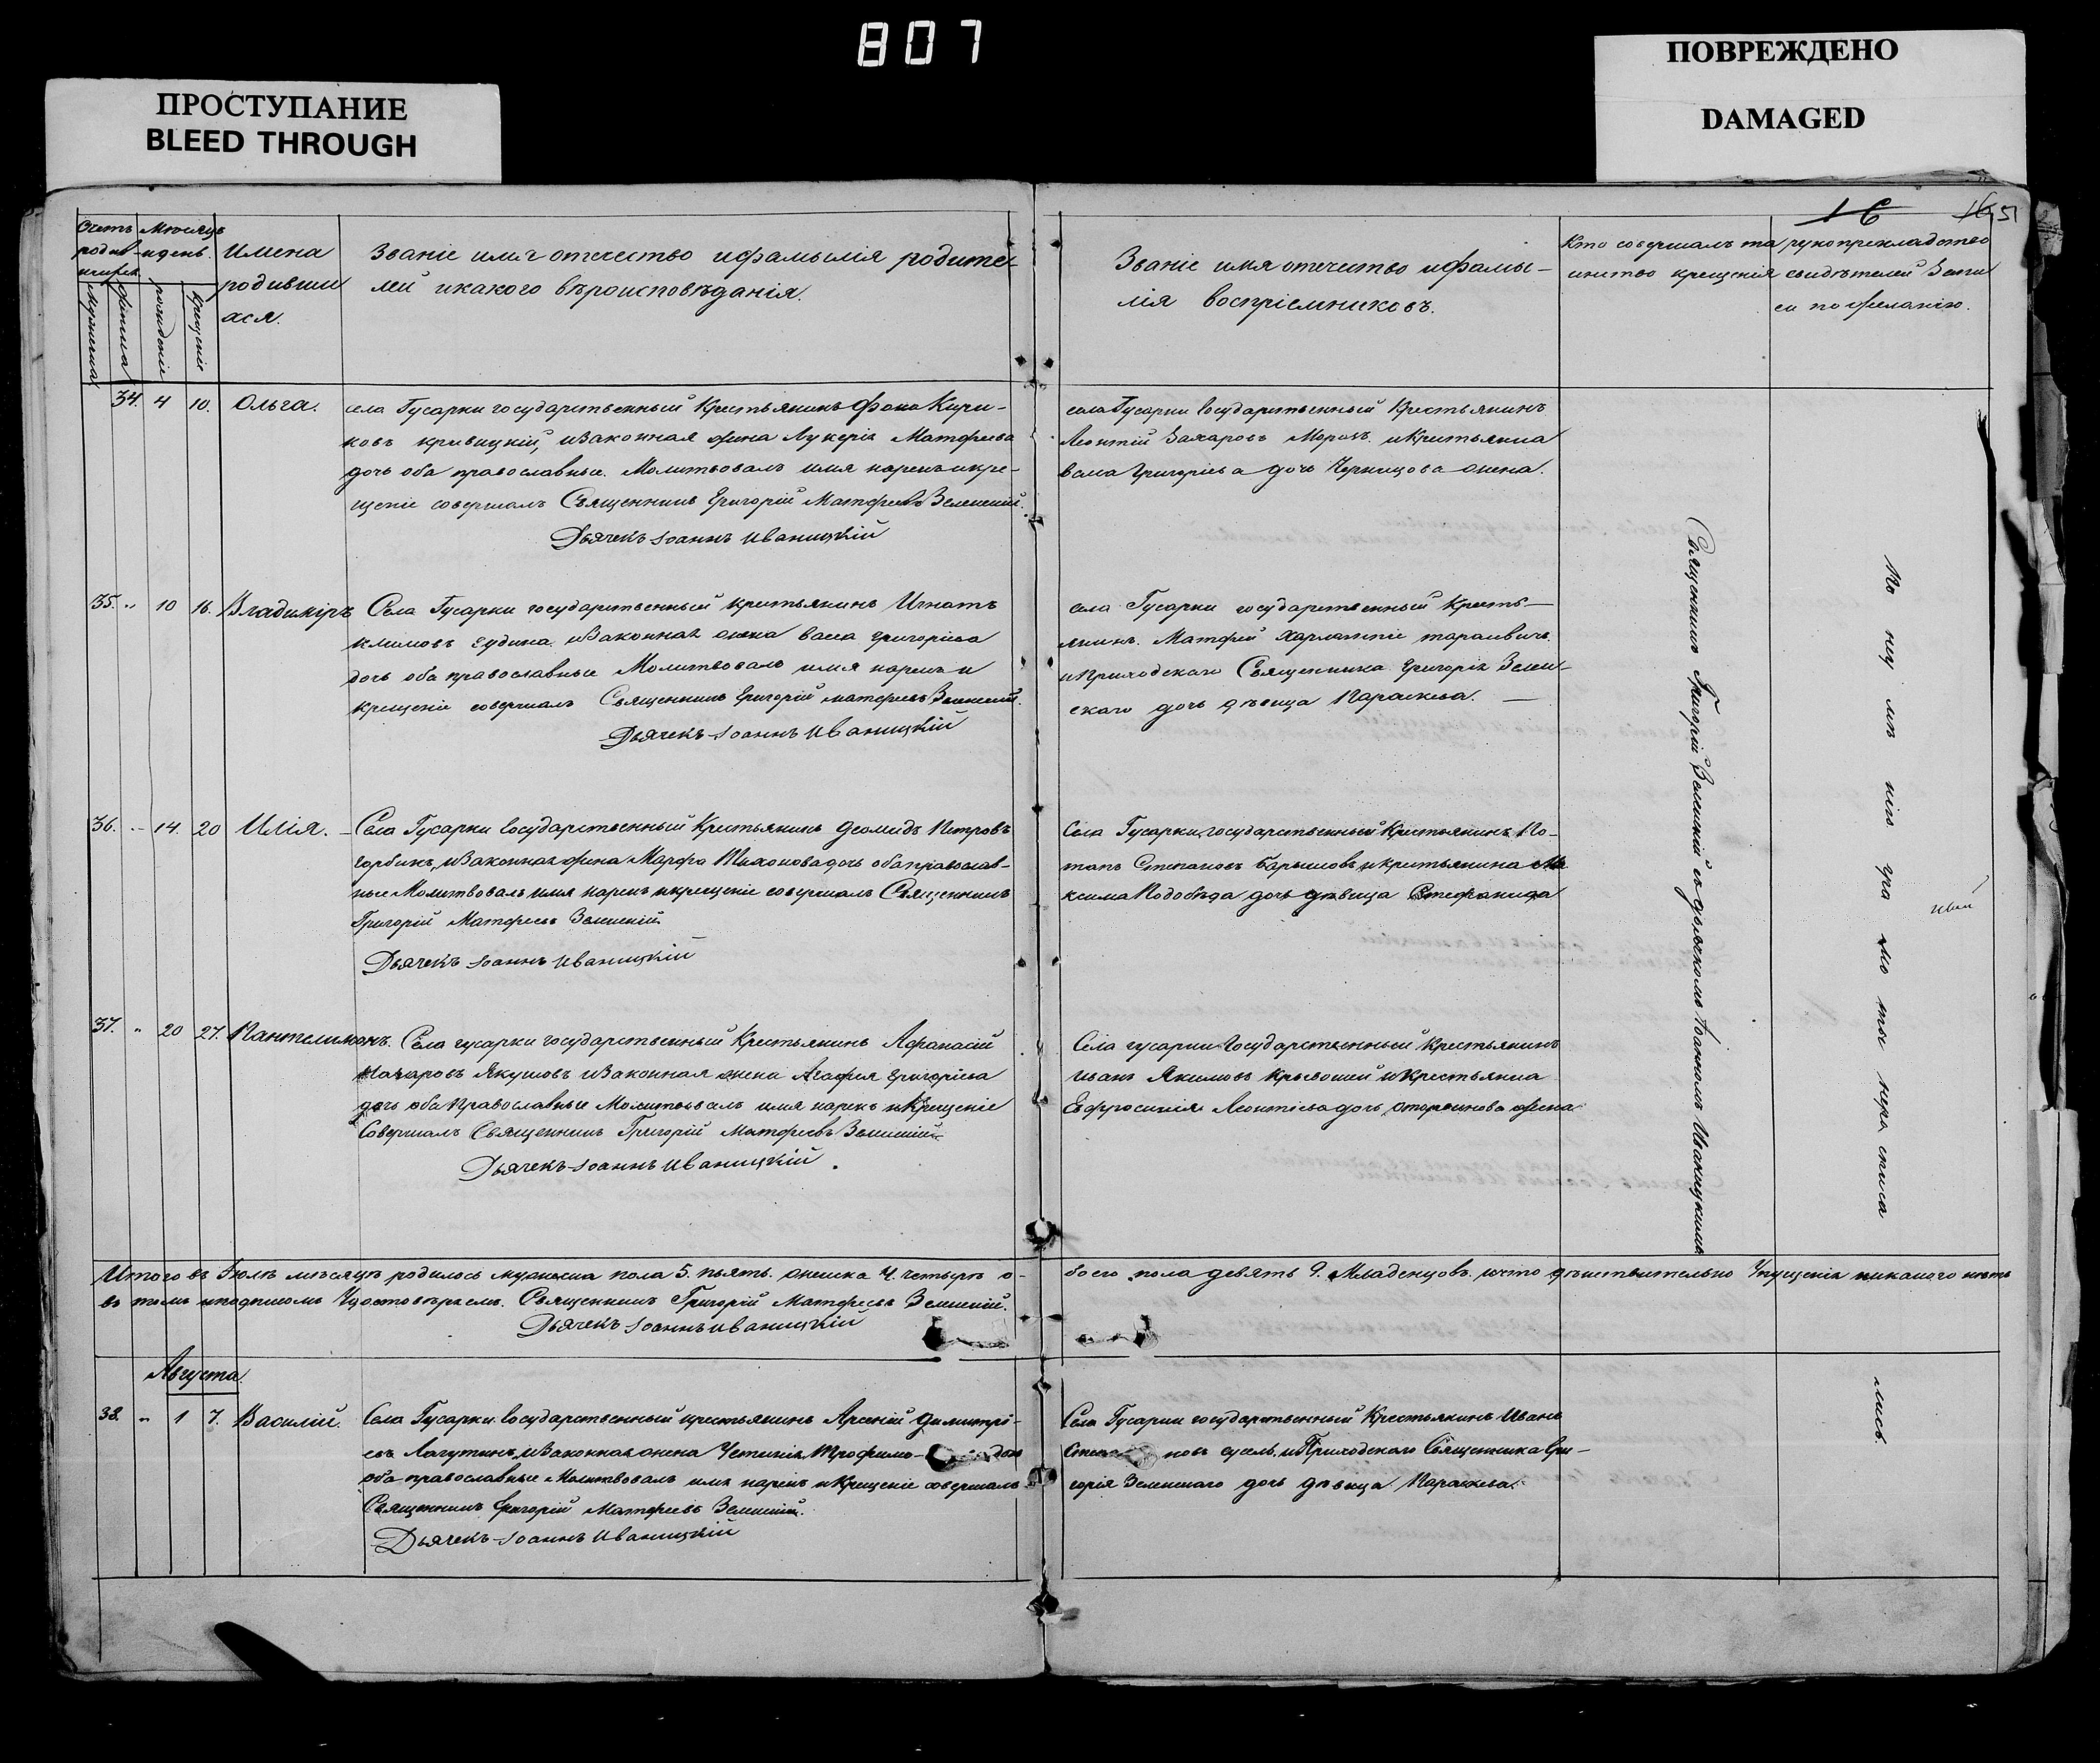 807
ПРОСТУПАНИЕ
BLEED THROUGH
ПОВРЕЖДЕНО
DAMAGED
16 51
Счетъ родив-
Мѣсяцъ и день.
мужеска
женска
рожденіе
крещеніе
Имена
родивши
ася.
Званіе имя отечество и фамилія родите-
лей и какого вѣроисповѣданія.
Званіе имя отечество и фамы-
лія воспріемниковъ.
Кто совершалъ та
инство крещенія
рукоприкладство
свидѣтелей Запи
си по желанію.
34. 4 10. Ольга.
села Гусарки государственный Крестьянинъ Фока Кири-
ковъ Кривицкій, и Законная жена Лукерія Матфеева
дочь оба православные. Молитвовалъ имя нарекъ и кре-
щеніе совершалъ Священникъ Григорій Матфеевъ Зеленскій.
Дьячекъ Іоаннъ Иваницкій
села Гусарки Государственный Крестьянинъ
Леонтій Захаровъ Морозъ и Крестьянка
Васса Григорьева дочь Черницова жена.
35. " 10 16. Владиміръ
Села Гусарки государственный крестьянинъ Игнатъ
Климовъ Еудина и Законная жена Васса Григорьева
дочь оба православные Молитвовалъ имя нарекъ и
крещеніе совершалъ Священникъ Григорій Матфеевъ Зеленскій.
Дьячекъ Іоаннъ Иваницкій
села Гусарки государственный Кресть-
янинъ. Матфей Харлампіе Тарасевичъ.
и Приходскаго Священника Григорія Зелен-
скаго дочь дѣвица Параскева. —
36. " 14. 20 Илія.
Села Гусарки Государственный Крестьянинъ Деомидъ Петровъ
Горбикъ, и Законная жена Марфа Тихонова дочь оба православ-
ные Молитвовалъ имя нарекъ и крещеніе совершалъ Священникъ
Григорій Матфеевъ Зеленскій.
Дьячекъ Іоаннъ Иваницкій
Села Гусарки, государственный Крестьянинъ По-
тапъ Степановъ Барышовъ и крестьянина Ма
ксима Подобѣда дочь дѣвица Стефанида
37. " 20 27. Пантелимонъ.
Села гусарки государственный Крестьянинъ Афанасій
Макаровъ Якушовъ и Законная жена Агафия Григорьева
дочь оба Православные Молитвовалъ имя нарекъ и Крещеніе
Совершалъ Священникъ Григорій Матфеевъ Зеленскій.
Дьячекъ Іоаннъ Иваницкій.
Села гусарки Государственный Крестьянинъ
Иванъ Якимовъ Кривошей и Крестьянка
Евфросинія Леонтіева дочь Сторожкова жена
Священникъ Григорій Зеленскій съ дьячкомъ Іоанномъ Иваницкимъ
По неу мѣ нію гра мо ты нера списа
лись.
Итого въ Іюлѣ мѣсяцѣ родилось мужеска пола 5. пьять. женска 4. четырѣ о-
боего пола девять 9. Младенцовъ, и что дѣйствительно Упущенія никакого нѣтъ
въ томъ и подписомъ Удостовѣряемъ. Священникъ Григорій Матфеевъ Зеленскій.
Дьячекъ Іоаннъ Иваницкій
Августа.
38. " 1 7. Василій.
Села Гусарки Государственный крестьянинъ Арсеній Димитрі-
евъ Лагутинъ, и Законная жена Устинія Трофимо- дочь
оба православные Молитвовалъ имя нарекъ и Крещеніе совершалъ
Священникъ Григорій Матфеевъ Зеленскій.
Дьячекъ Іоаннъ Иваницкій
Села Гусарки государственный Крестьянинъ Иванъ
новъ сусель, и Приходскаго Священника Гри-
горія Зеленскаго дочь дѣвица Параскева.